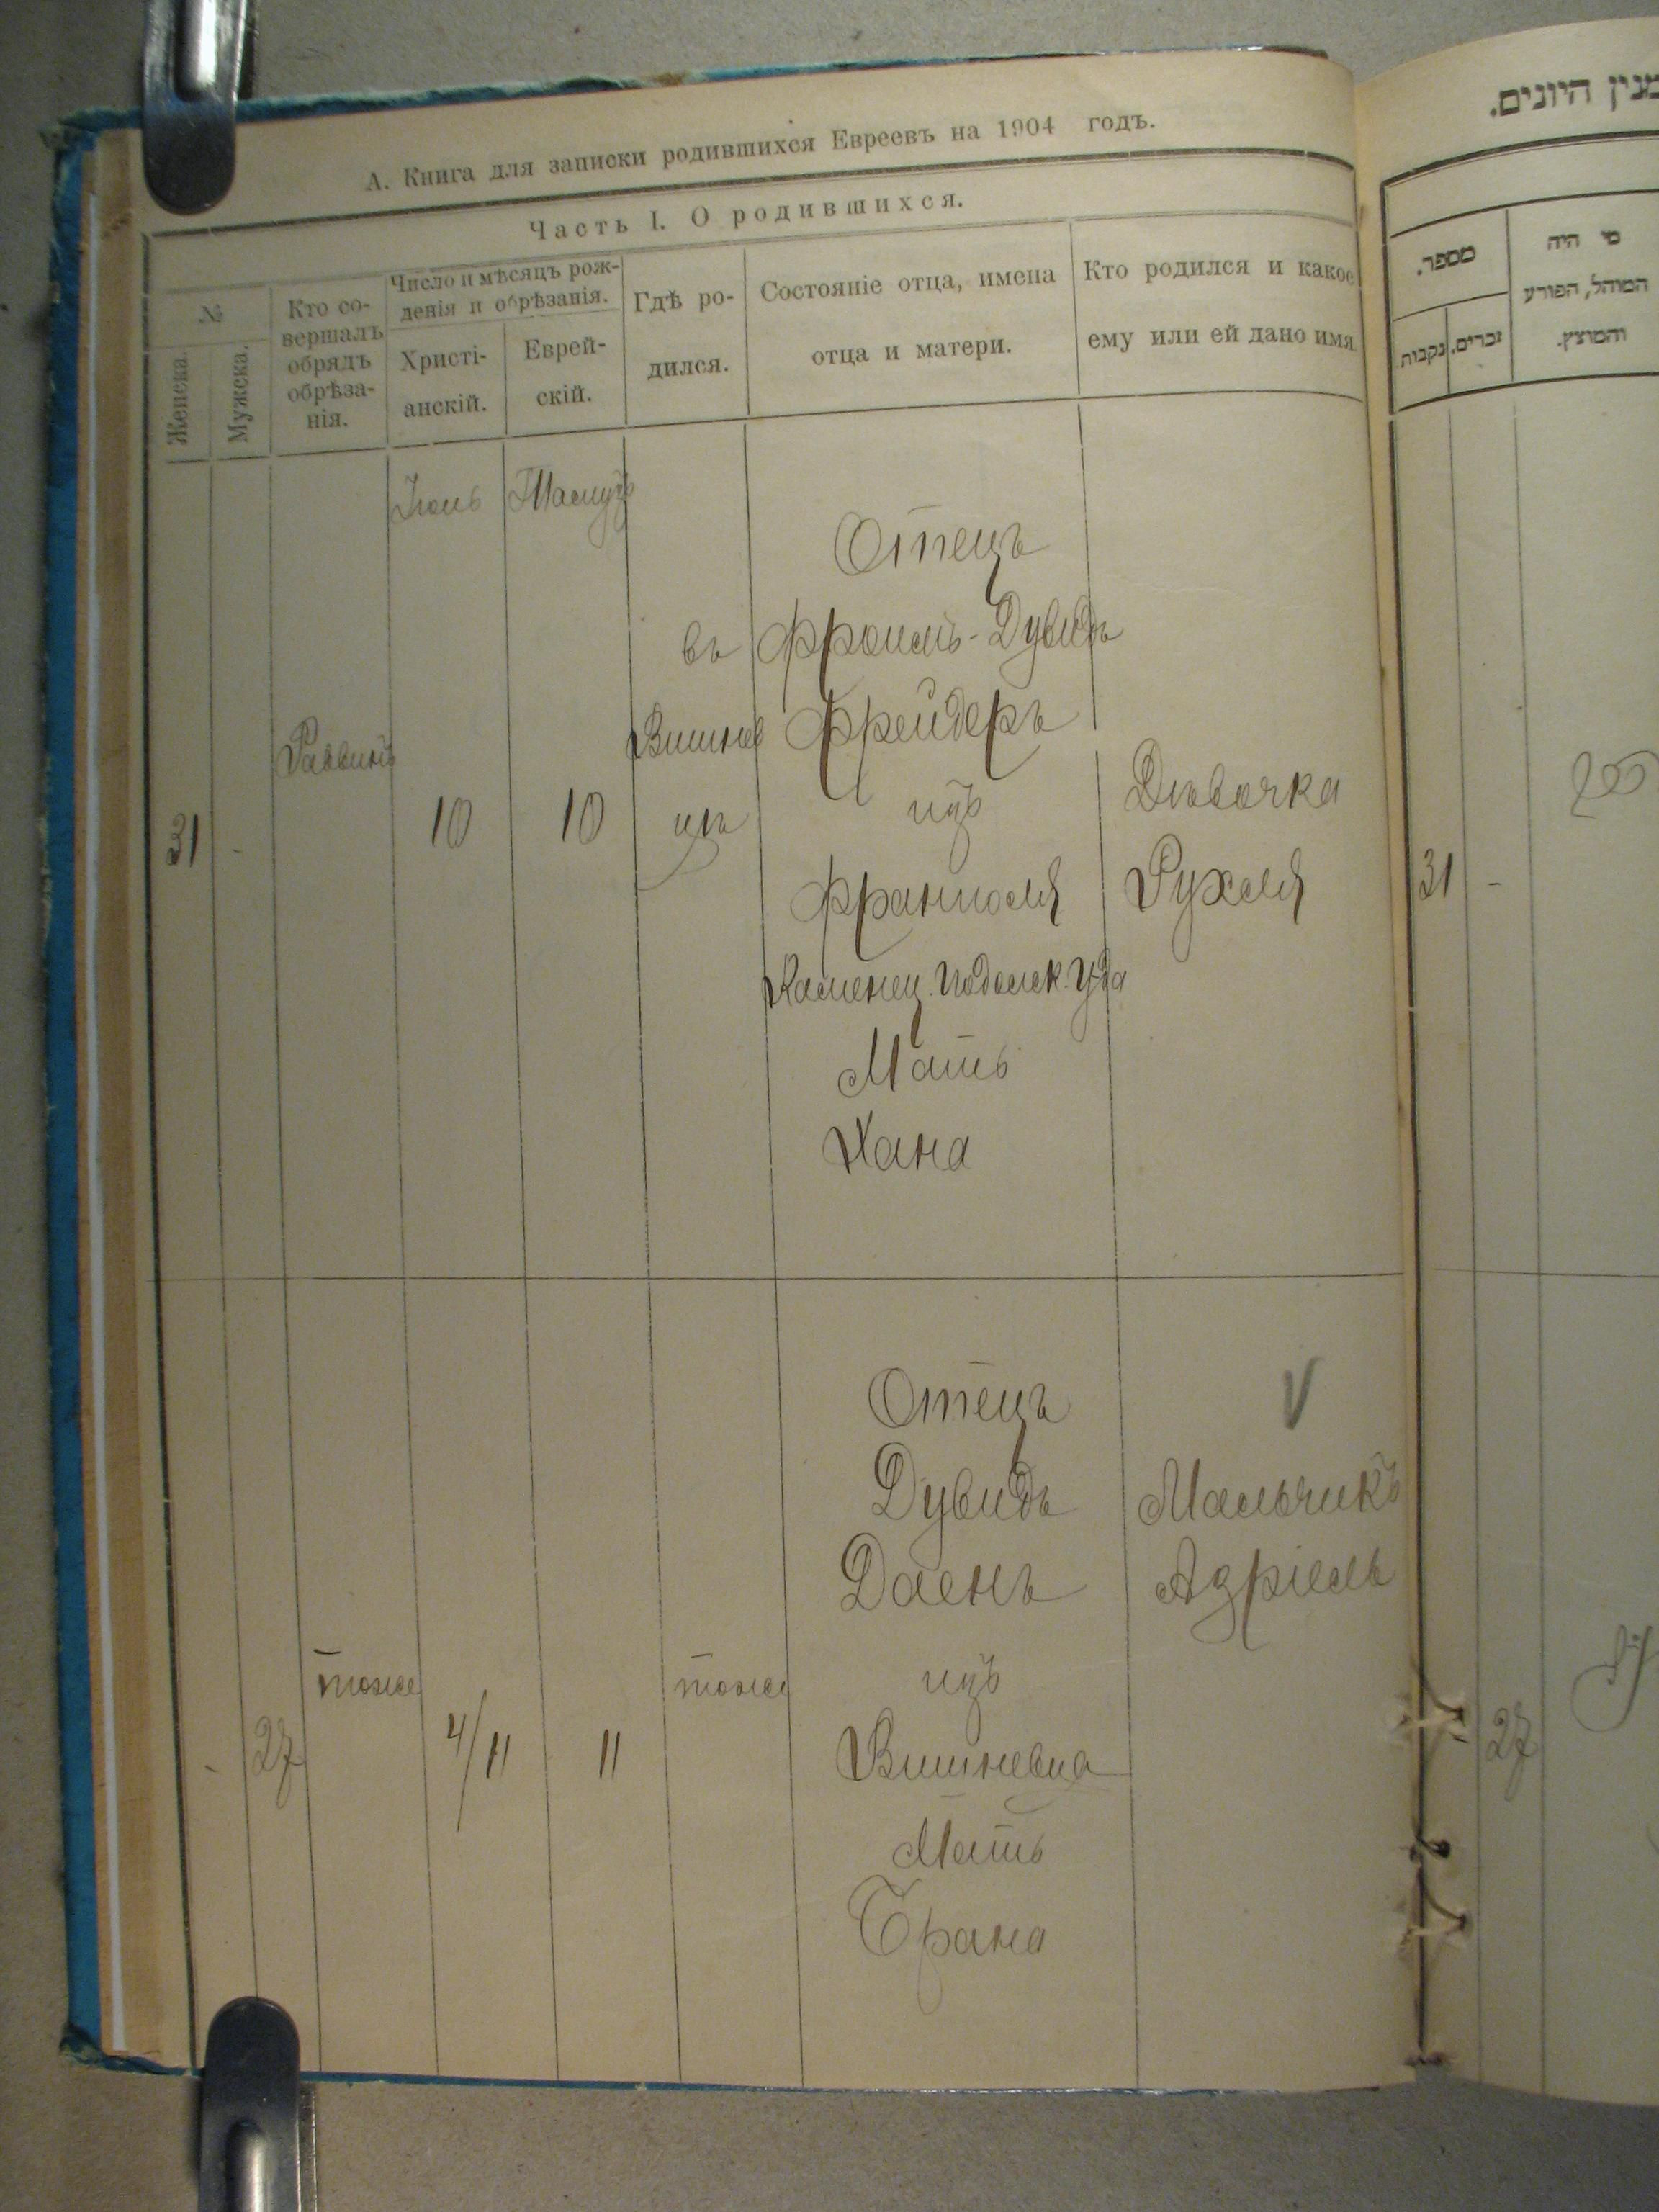 А. Книга для записки родившихся Евреевъ на 1904 годъ.
Часть I. О родившихся.
№
Женска.
Мужска.
Кто со-
вершалъ
обрядъ
обрѣза-
нія.
Число и мѣсяцъ рож-
денія и обрѣзанія.
Христі-
анскій.
Еврей-
скій.
Гдѣ ро-
дился.
Состояніе отца, имена
отца и матери.
Кто родился и какое
ему или ей дано имя.
Іюль
Тамузъ
31
-
Раввинъ
10
10
въ
Вишнев
цѣ
Отецъ
Фроимъ-Дувидъ
Фрейдеръ
изъ
Франполя
Каменец. Подольск. Уѣда
Мать
Хана
Дѣвочка
Рухля
-
27
тоже
4/11
11
тоже
Отецъ
Дувидъ
Даенъ
изъ
Вишневца
Мать
Брана
V
Мальчикъ
Азріель
מנין היונים.
מספר.
נקבות
זכרים.
מי היה
המוהל, הפורע
והמוצץ.
31
-
27